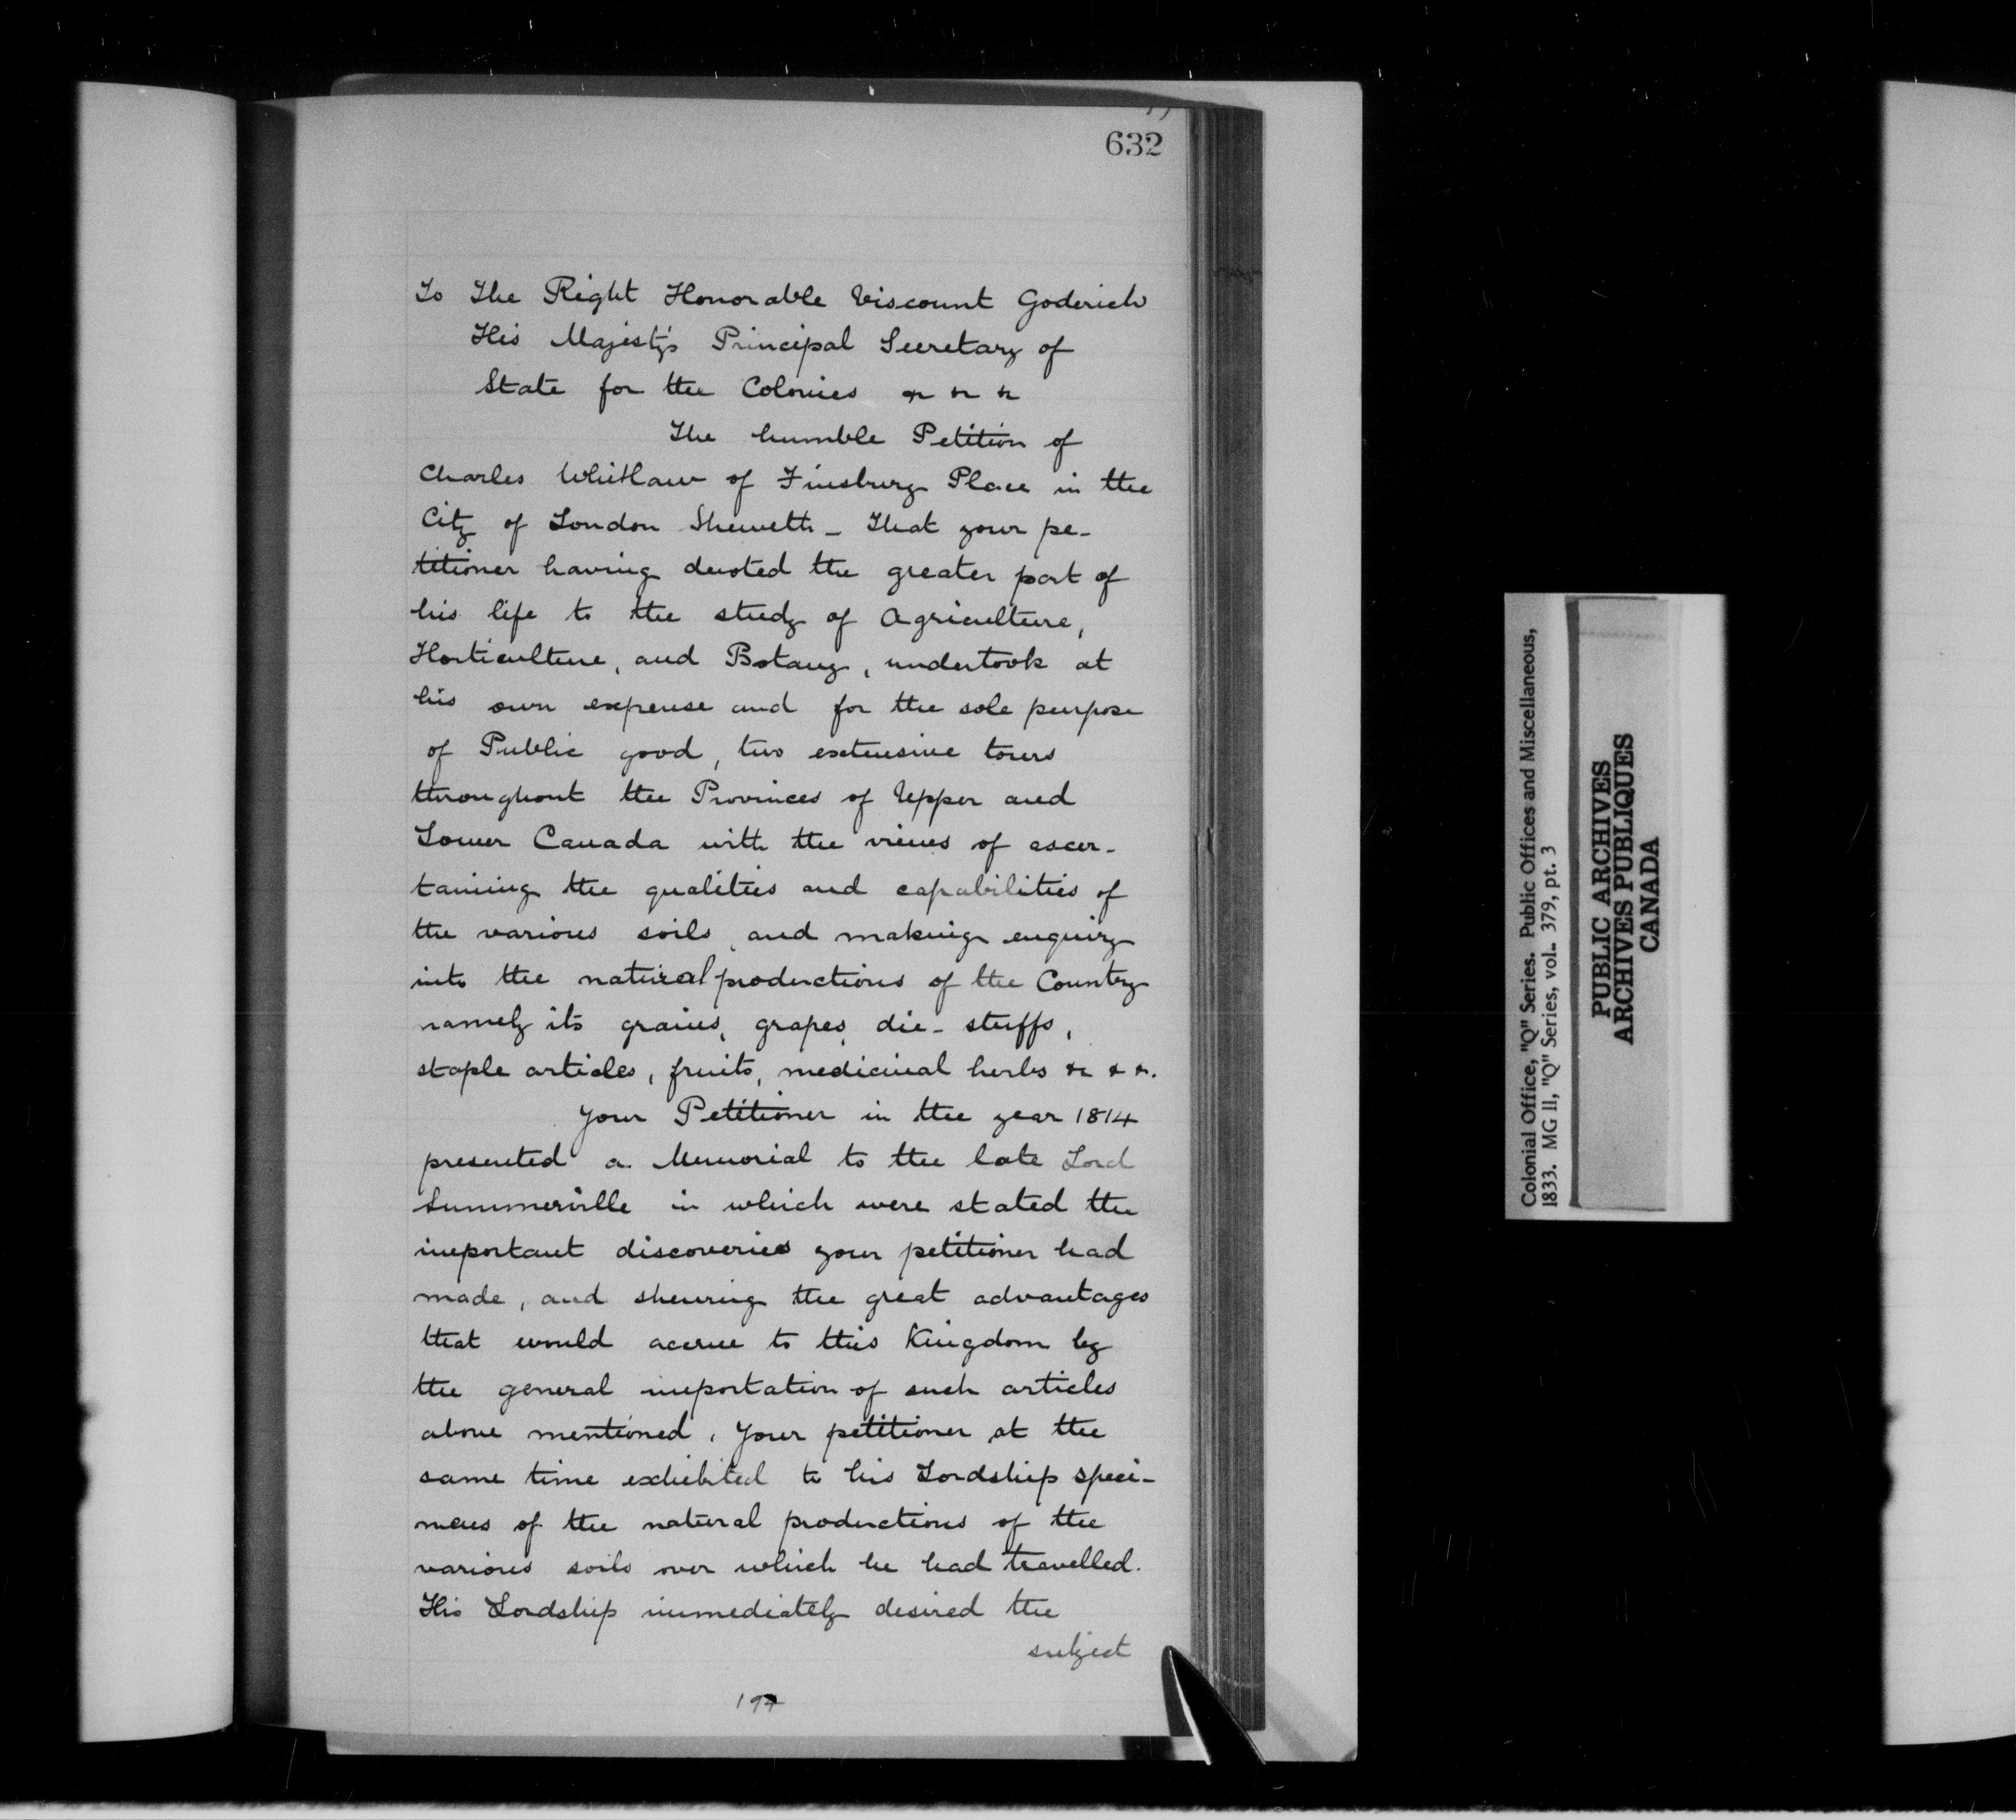 632
To The Right Honorable Viscount Goderich
His Majesty's Principal Secretary of
State for the Colonies &c &c &c
The humble Petition of
Charles Whitlaw of Finsbury Place in the
City of London Sheweth - That your pe-
titioner having devoted the greater part of
his life to the study of Agriculture,
Horticulture, and Botany, undertook at
his own expense and for the sole purpose
of Public good, two extensive tours
throughout the Provinces of Upper and
Lower Canada with the views of ascer-
taining the qualities and capabilities of
the various soils, and making enquiry
into the natural productions of the Country
namely its grains, grapes, die-stuffs,
staple articles, fruits, medicinal herbs &c & &c.
Your Petitioner in the year 1814
presented a Memorial to the late Lord
Summerville in which were stated the
important discoveries your petitioner had
made, and shewing the great advantages
that would accrue to this Kingdom by
the general importation of such articles
above mentioned, Your petitioner at the
same time exhibited to his Lordship speci-
mens of the natural productions of the
various soils over which he had travelled.
His Lordship immediately desired the
subject
Colonial Office, "Q" Series. Public Offices and Miscellaneous,
1833. MG 11, "Q" Series, vol. 379, pt. 3
PUBLIC ARCHIVES
ARCHIVES PUBLIQUES
CANADA